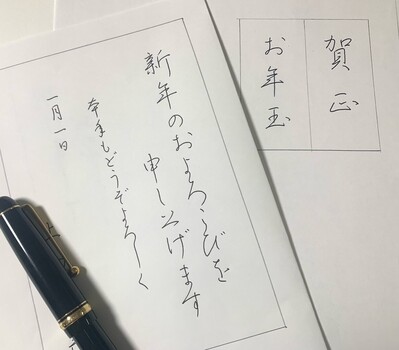 賀正
お年玉
新年のおよろこびを
申し上げます
本年もどうぞよろしく
一月一日